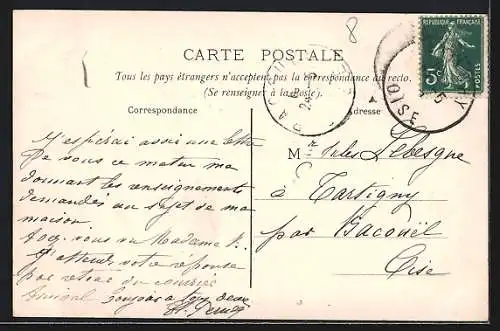 8
CARTE POSTALE
Tous les pays étrangers n'acceptent pas la correspondance au recto.
(Se renseigner à la Poste).
Correspondance
Adresse
REPUBLIQUE FRANÇAISE
5c
POSTES
OISE
J'espérai avoir une lettre
De vous ce matin me
donnant les renseignements
demandés au sujet de ma
maison
vous vu Madame
J'attends votre réponse
par retour du courrier
Amical bonjour a tous deux
M Jules Lebesgue
à Tartigny
par Bacouël
Oise